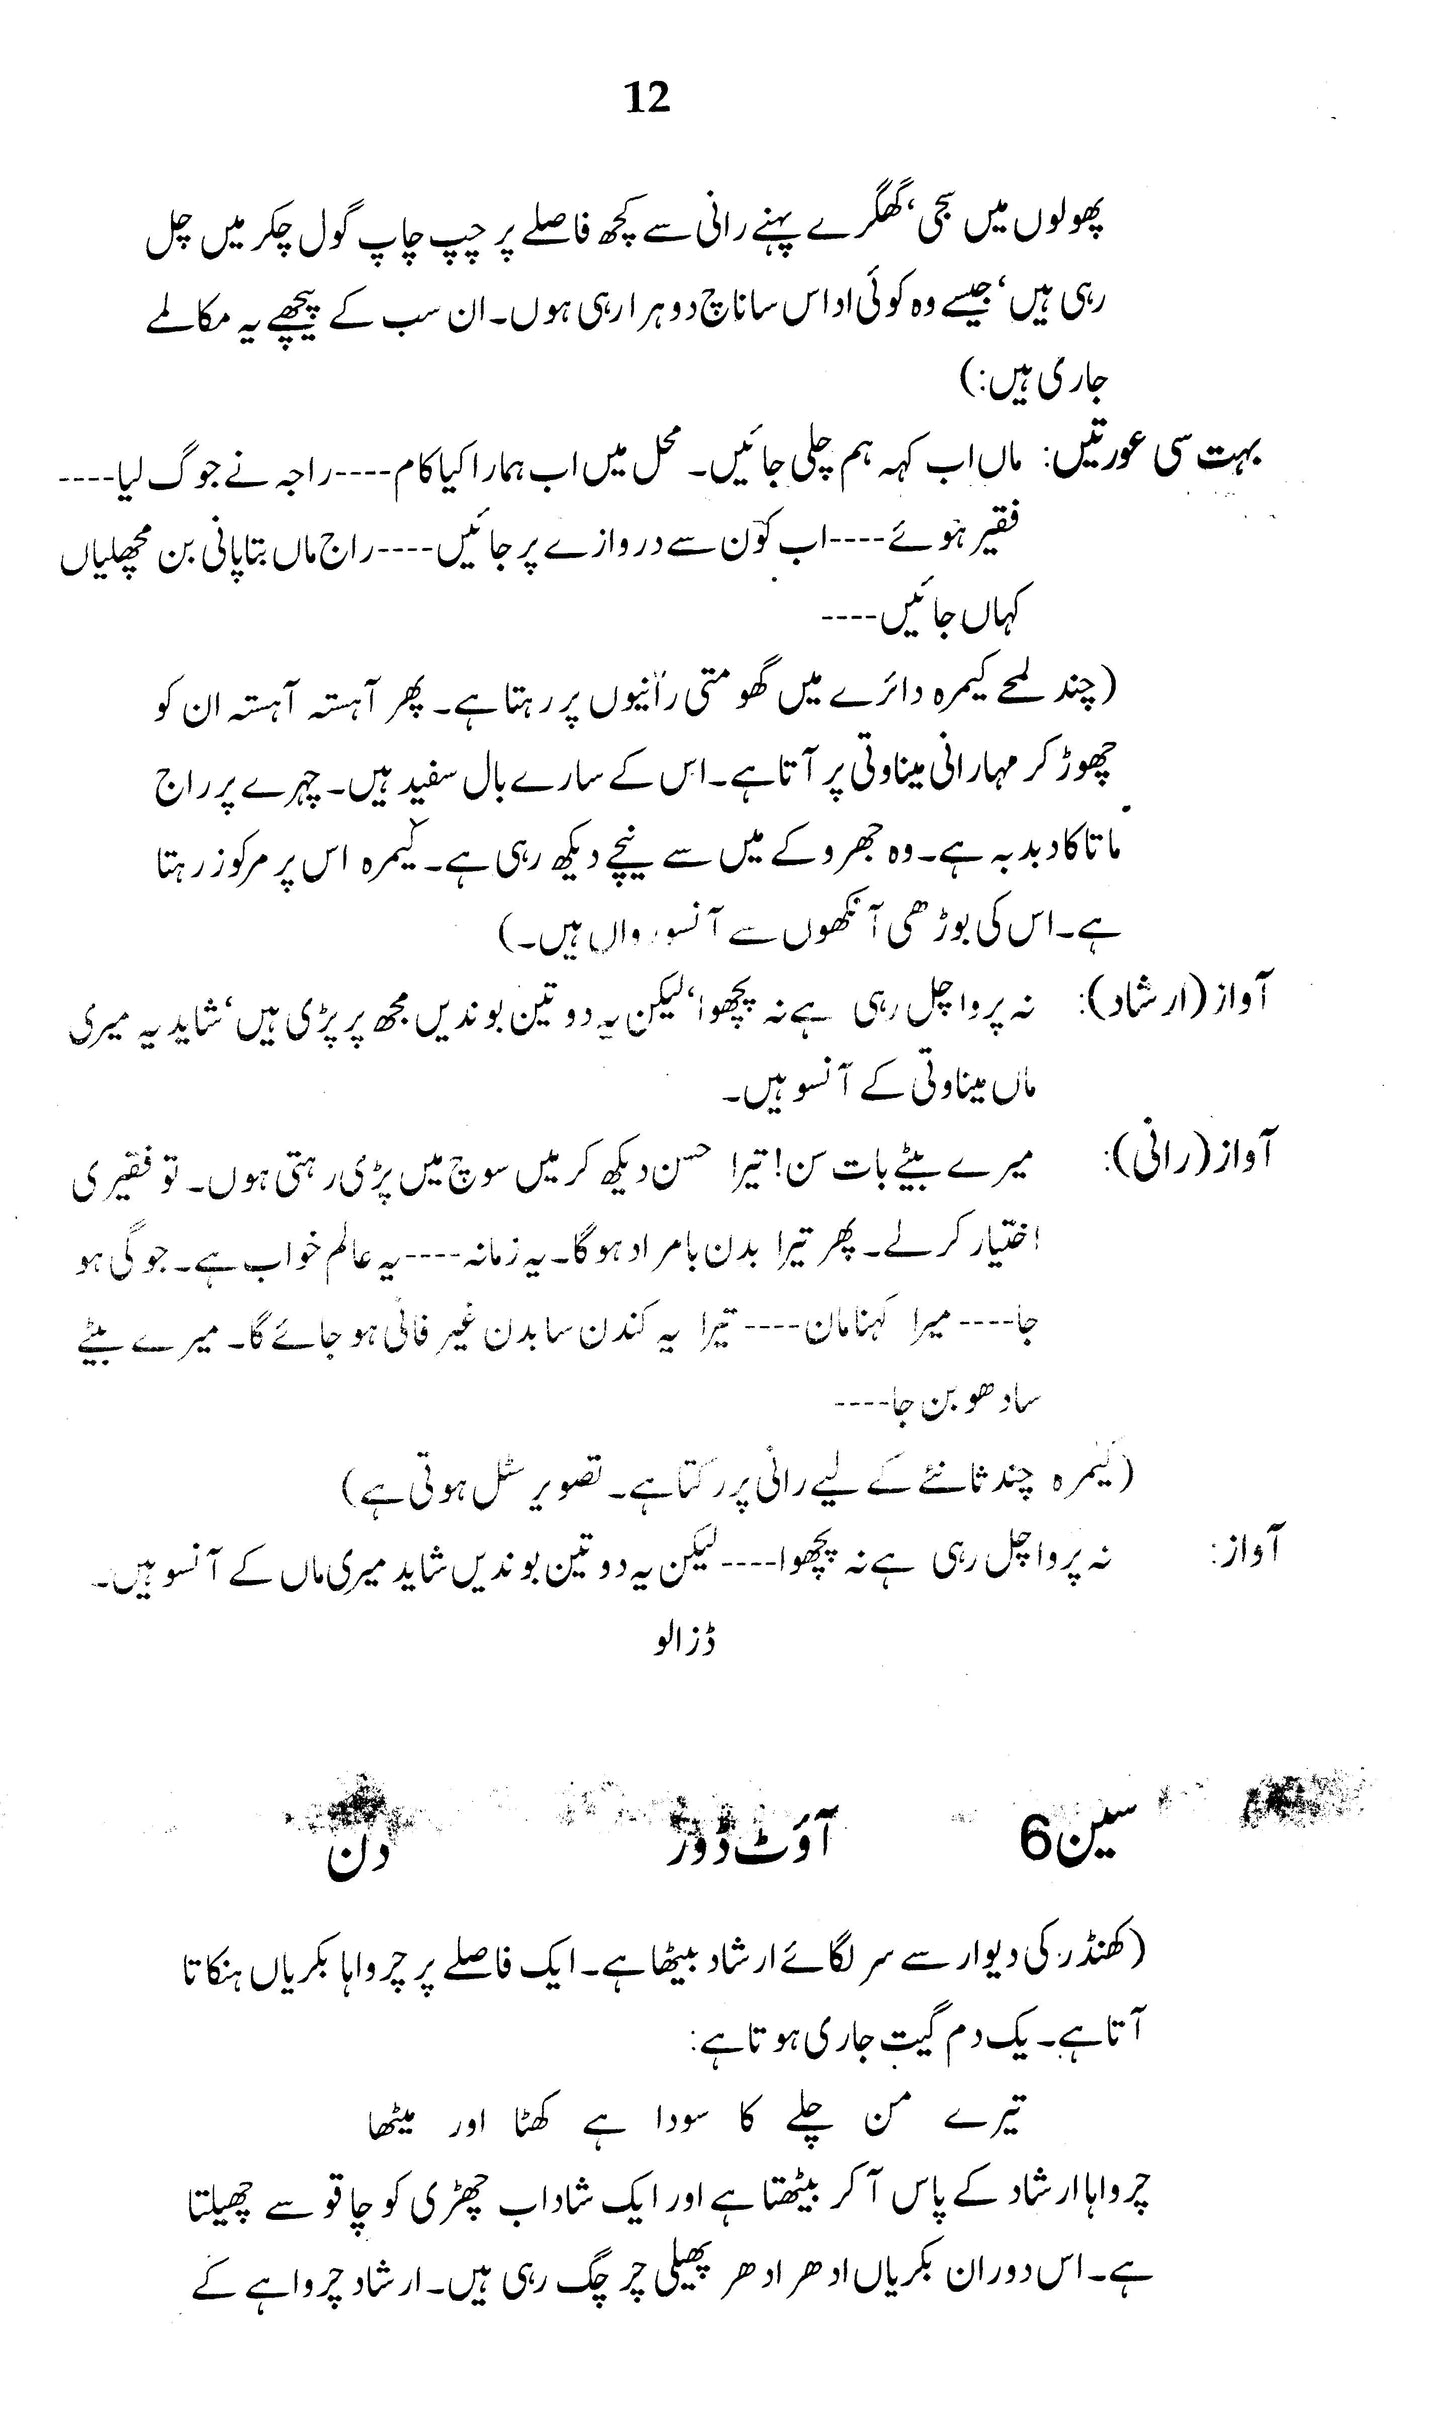 12
پھولوں میں سجی، گھگرے پہنے رانی سے کچھ فاصلے پر چپ چاپ گول چکر میں چل
رہی ہیں، جیسے وہ کوئی اداس سا ناچ دوہرا رہی ہوں۔ ان سب کے پیچھے یہ مکالمے
جاری ہیں:)
بہت سی عورتیں: ماں اب کہہ ہم چلی جائیں۔ محل میں اب ہمارا کیا کام----راجہ نے جوگ لیا----
فقیر ہوئے----اب کون سے دروازے پر جائیں----راج ماں بتا پانی بن مچھلیاں
کہاں جائیں----
(چند لمحے کیمرہ دائرے میں گھومتی رانیوں پر رہتا ہے۔ پھر آہستہ آہستہ ان کو
چھوڑ کر مہارانی میناوتی پر آتا ہے۔ اس کے سارے بال سفید ہیں۔ چہرے پر راج
ماتا کا دبدبہ ہے۔ وہ جھروکے میں سے نیچے دیکھ رہی ہے۔ کیمرہ اس پر مرکوز رہتا
ہے۔ اس کی بوڑھی آنکھوں سے آنسو رواں ہیں۔)
آواز (ارشاد): نہ پروا چل رہی ہے نہ پچھوا، لیکن یہ دو تین بوندیں مجھ پر پڑی ہیں، شاید یہ میری
ماں میناوتی کے آنسو ہیں۔
آواز (رانی): میرے بیٹے بات سن! تیرا حسن دیکھ کر میں سوچ میں پڑی رہتی ہوں۔ تو فقیری
اختیار کر لے۔ پھر تیرا بدن بامراد ہو گا۔ یہ زمانہ----یہ عالم خواب ہے۔ جوگی ہو
جا----میرا کہنا مان----تیرا یہ کندن سا بدن غیر فانی ہو جائے گا۔ میرے بیٹے
سادھو بن جا----
(کیمرہ چند ثانئے کے لیے رانی پر رکتا ہے۔ تصویر سٹل ہوتی ہے)
آواز: نہ پروا چل رہی ہے نہ پچھوا----لیکن یہ دو تین بوندیں شاید میری ماں کے آنسو ہیں۔
ڈزالو
سین 6 آؤٹ ڈور دن
(کھنڈر کی دیوار سے سر لگائے ارشاد بیٹھا ہے۔ ایک فاصلے پر چرواہا بکریاں ہنکاتا
آتا ہے۔ یک دم گیت جاری ہوتا ہے:
تیرے من چلے کا سودا ہے کھٹا اور میٹھا
چرواہا ارشاد کے پاس آ کر بیٹھتا ہے اور ایک شاداب چھڑی کو چاقو سے چھیلتا
ہے۔ اس دوران بکریاں ادھر ادھر پھیلی چر چگ رہی ہیں۔ ارشاد چرواہے کے